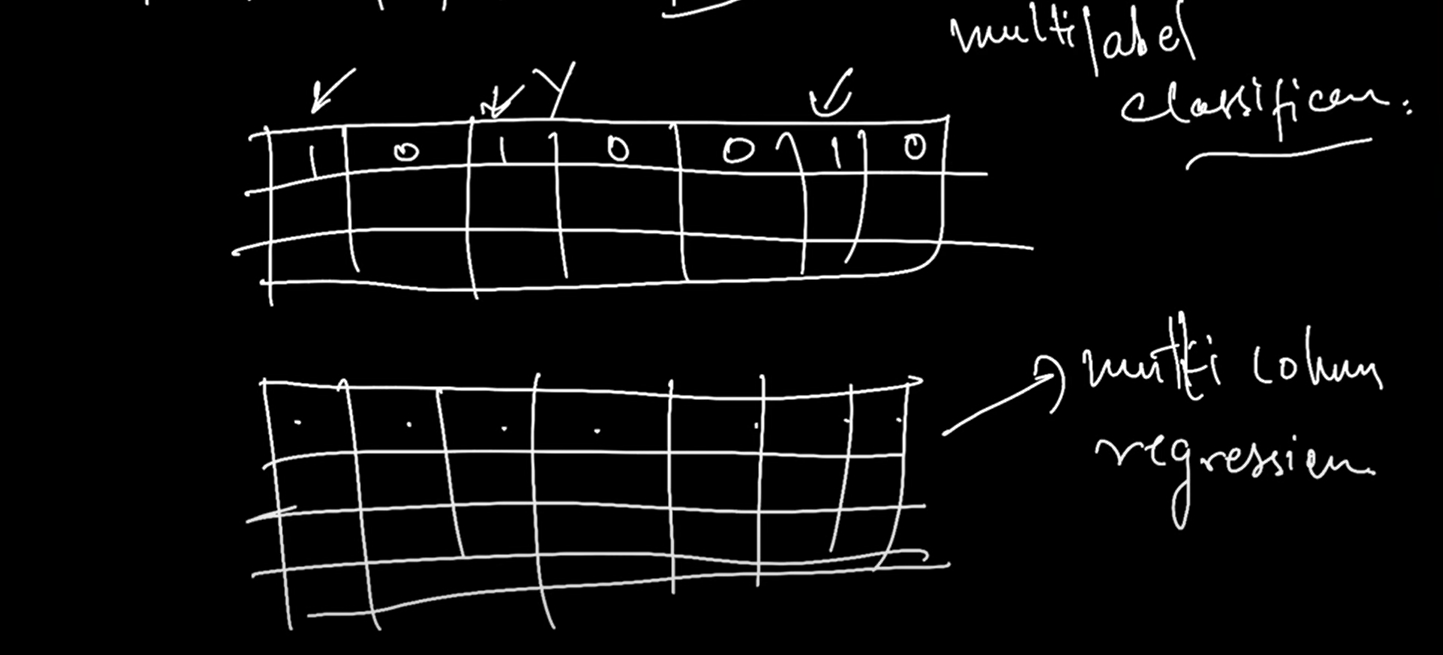 multilabel
classification.
Y
1 0 1 0 0 1 0
multi column
regression